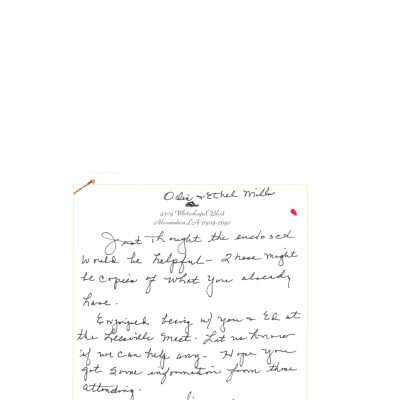 Odie & Ethel Mills
Just Thought the enclosed
would be helpful - These might
be copies of what you already
have.
Enjoyed being w/ you & Ed at
the Leesville meet. Let us know
if we can help any. Hope you
got some information from those
attending.